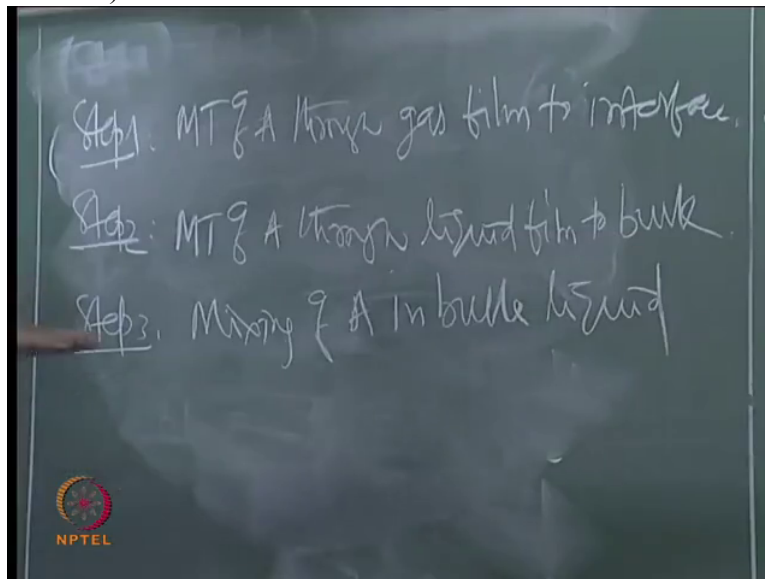 Step1: MT of A through gas film to interface.
Step2: MT of A through liquid film to bulk.
Step3. Mixing of A in bulk liquid
NPTEL